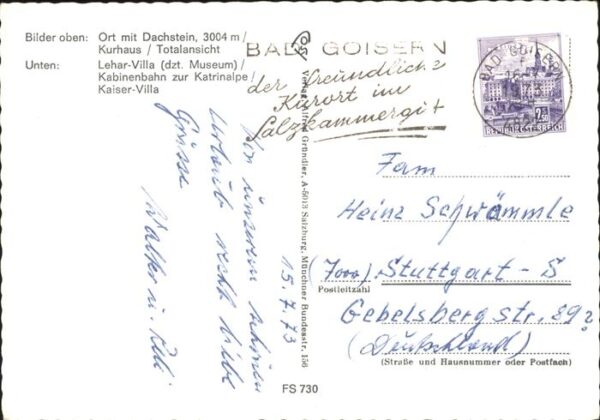 Bilder oben: Ort mit Dachstein, 3004 m /
Kurhaus / Totalansicht
Unten: Lehar-Villa (dzt. Museum) /
Kabinenbahn zur Katrinalpe /
Kaiser-Villa
BAD GOISERN
der freundliche
Kurort im
Salzkammergut
BAD GOISERN
4822
REPUBLIK ÖSTERREICH
Verlag Gründler, A-5013 Salzburg, Münchner Bundesstr. 156
15.7.73
Von unserem schönen
Urlaub recht liebe
Grüsse
Walter u.
Fam
Heinz Schwämmle
(7000) Stuttgart - S
Postleitzahl
Gebelsberg str. 89?
(Deutschland)
(Straße und Hausnummer oder Postfach)
FS 730